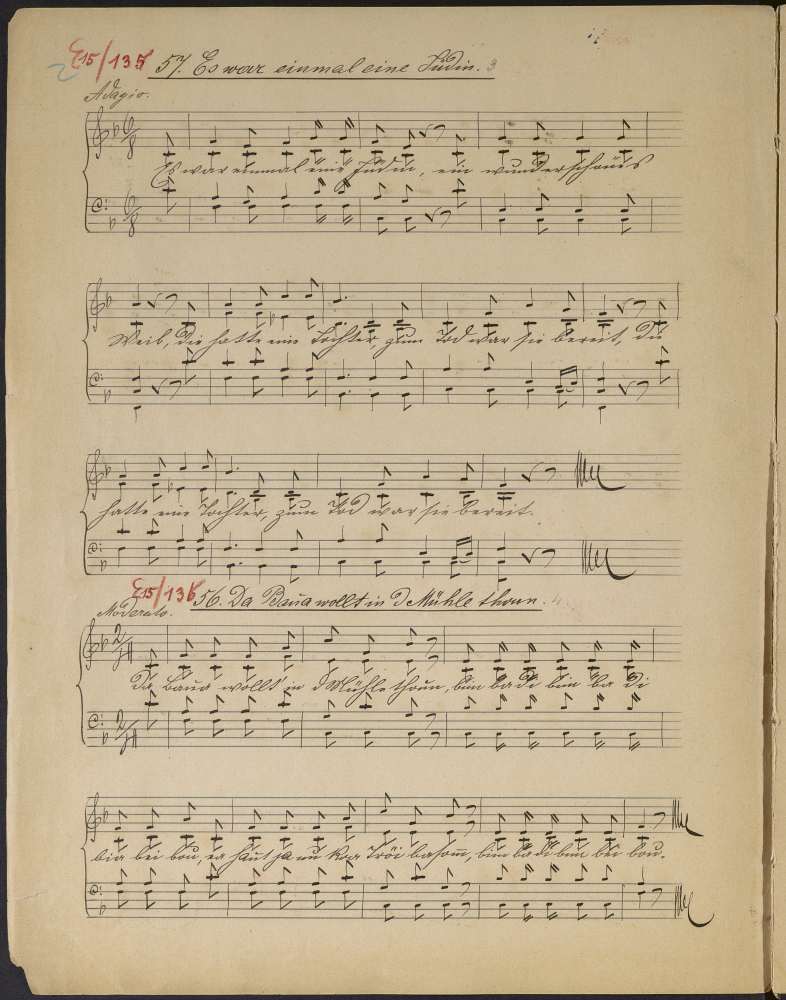 E 15/135 57. Es war einmal eine Jüdin. 3
2
Adagio.
6/8
Es war einmal eine Jüdin, ein wunderschönes
6/8
Weib, die hatte eine Tochter, zum Tod war sie bereit, die
hatte eine Tochter, zum Tod war sie bereit.
E 15/136 56. Da Baua wollt in d Mühle thoun. 4
Moderato.
2/4
Da Baua wollt in d Mühle thoun, bim ba di bim ba di
2/4
bia bei bou, ea haut ja nu koa bim ba di bim bei bou.